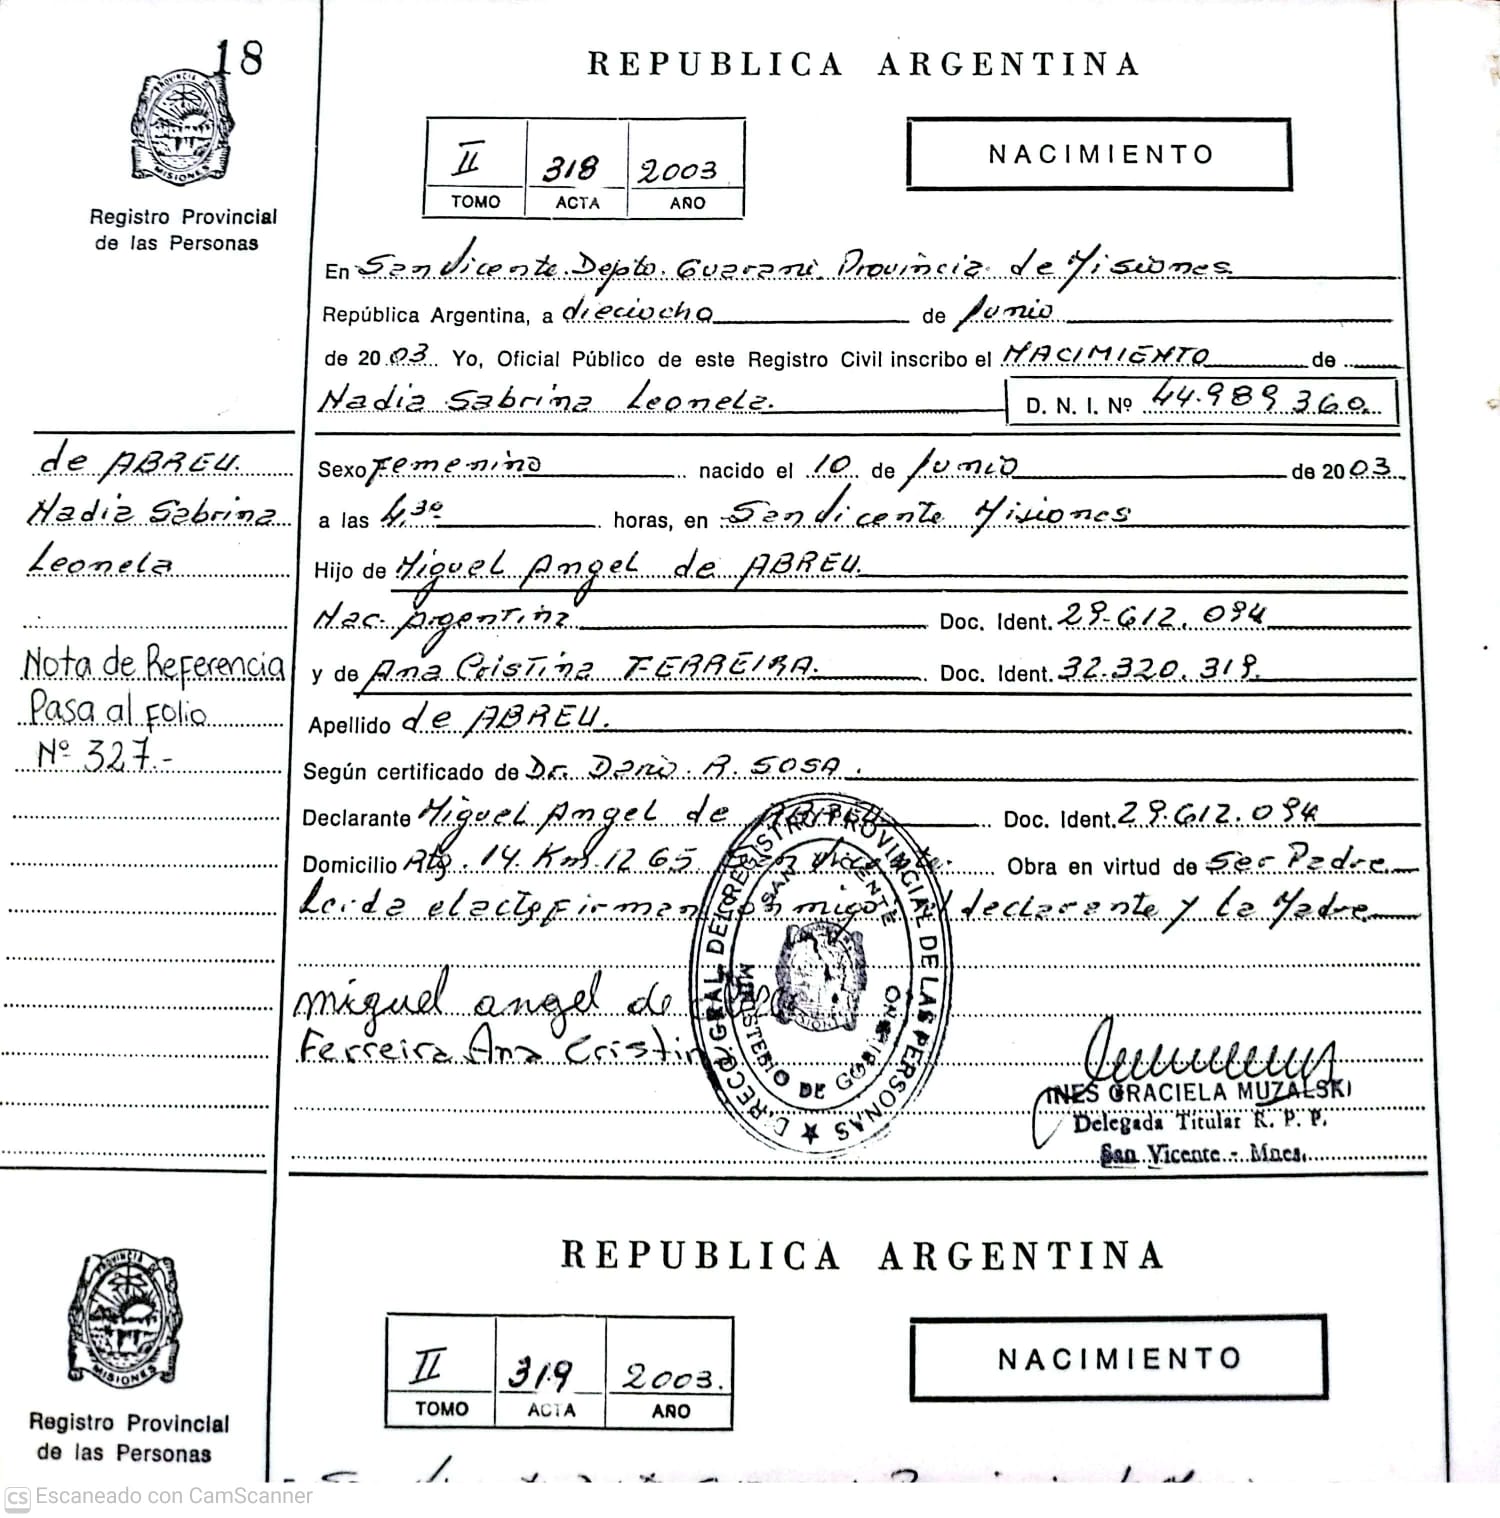 18
REPUBLICA ARGENTINA
II 318 2003
TOMO ACTA AÑO
NACIMIENTO
PROVINCIA DE
MISIONES
Registro Provincial
de las Personas
En San Vicente. Depto. Guarani. Provincia de Misiones
República Argentina, a dieciocho de Junio
de 2003. Yo, Oficial Público de este Registro Civil inscribo el NACIMIENTO de
Nadia Sabrina Leonela. D. N. I. Nº 44.989.360
de ABREU.
Nadia Sabrina
Leonela
Nota de Referencia
Pasa al folio
Nº 327.-
Sexo Femenino nacido el 10 de Junio de 2003
a las 4,30 horas, en San Vicente Misiones
Hijo de Miguel Angel de ABREU.
Nac. Argentina Doc. Ident. 29.612.094
y de Ana Cristina FERREIRA. Doc. Ident. 32.320.319.
Apellido de ABREU.
Según certificado de Dr. Dario. R. SOSA.
Declarante Miguel Angel de ABREU Doc. Ident. 29.612.094
Domicilio Rta. 14. Km. 1265. San Vicente. Obra en virtud de Ser Padre
Leida el acta firman con migo el declarante y la Madre
miguel angel de
Ferreira Ana Cristin
D. RECO. GRAL. DEL REGISTRO PROVINCIAL DE LAS PERSONAS
SAN VICENTE
MINISTERIO DE GOBIERNO
INES GRACIELA MUZALSKI
Delegada Titular R. P. P.
San Vicente - Mnes.
REPUBLICA ARGENTINA
II 319 2003.
TOMO ACTA AÑO
NACIMIENTO
PROVINCIA DE
MISIONES
Registro Provincial
de las Personas
CS Escaneado con CamScanner